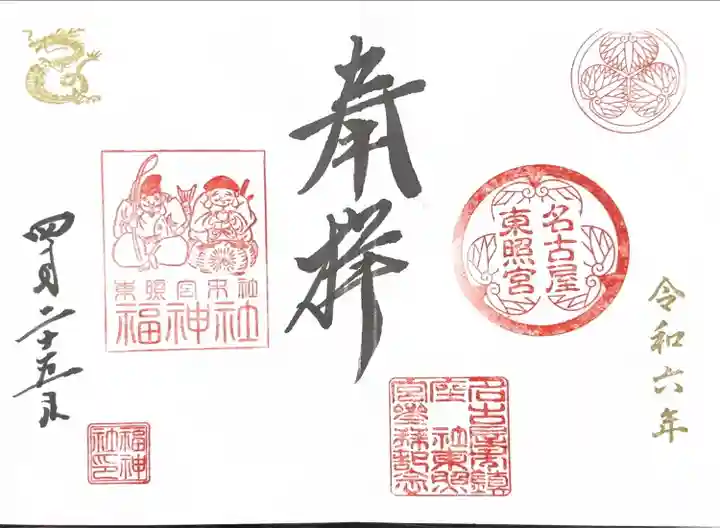 令和六年
名古屋
東照宮
奉拝
名古屋東照宮末社
福神社
四月二十五日
福神
社印